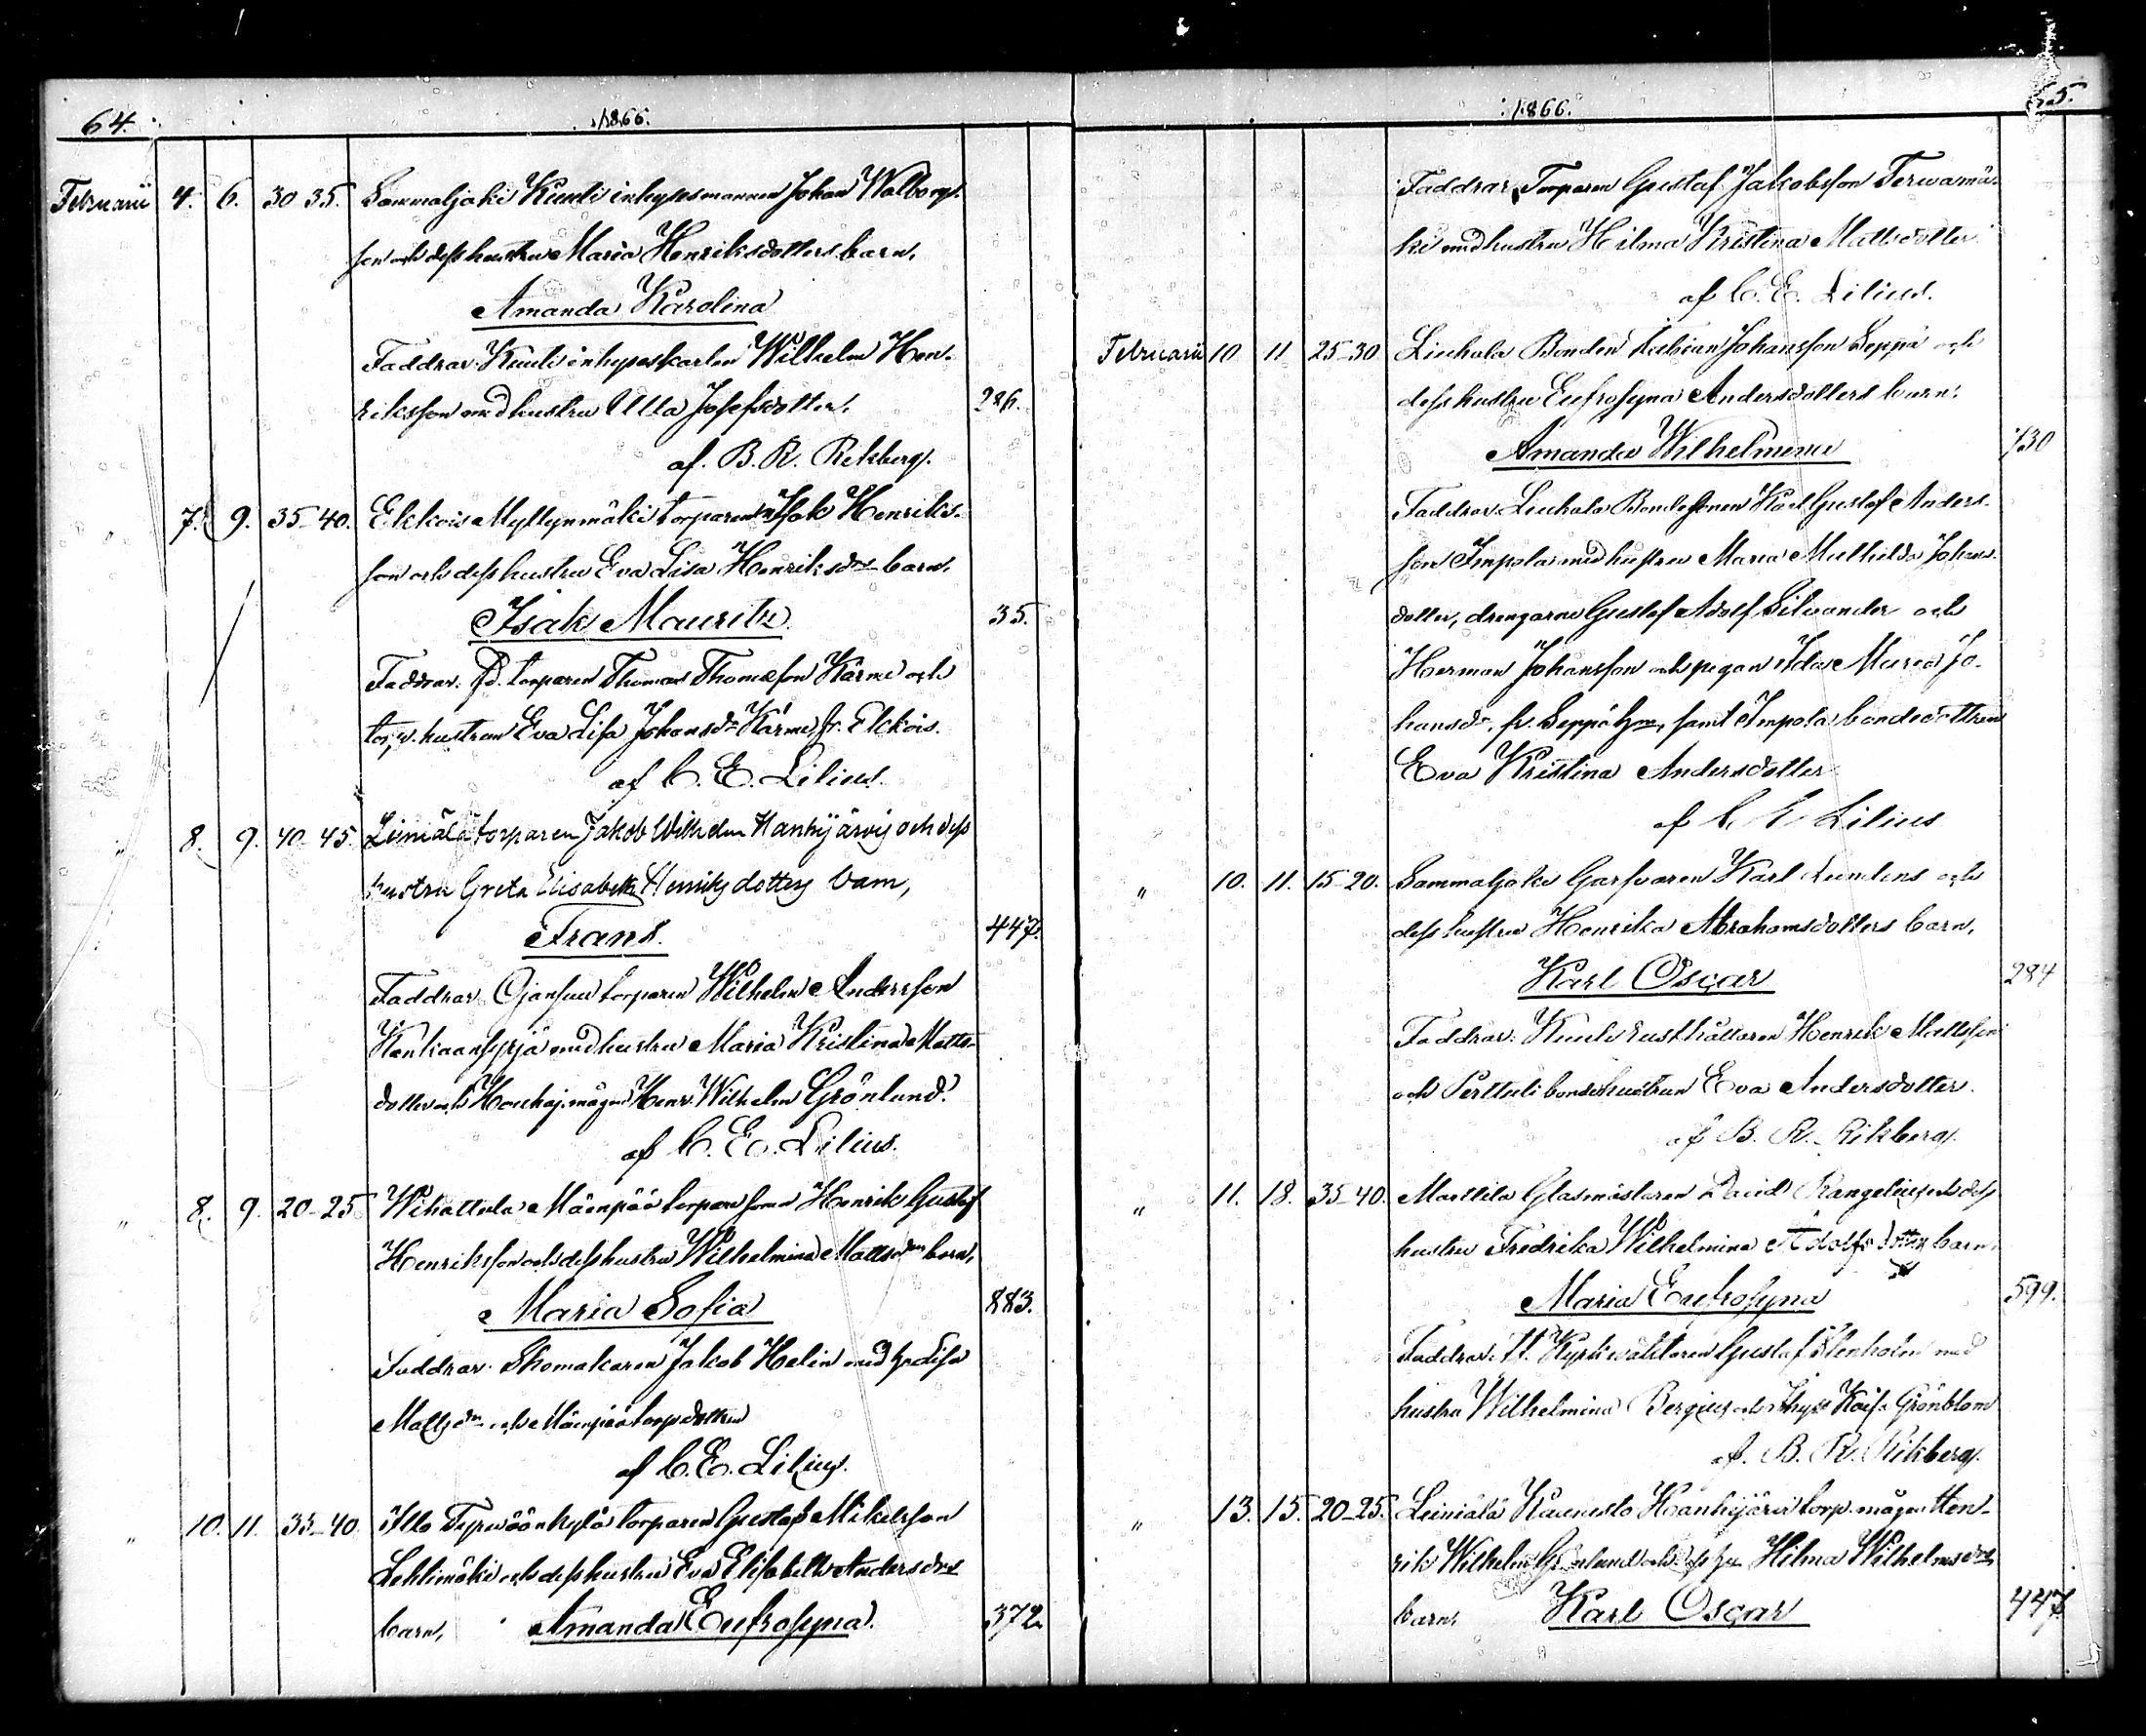 64.
1866.
Februarii 4. 6. 30-35. Sammaljoki Kuuli inhysesmannen Johan Walborg-
son och dess hustru Maria Henriksdotters barn,
Amanda Karolina
Faddrar: Kuuli inhyseskarlen Wilhelm Hen-
riksson med hustru Ulla Josefsdotter. 286.
af. B. R. Rikberg.
7. 9. 35-40. Ekkois Myllynmäki torparen Isak Henriks-
son och dess hustru Eva Lisa Henriksdrs barn,
Isak Mauritz 35.
Faddrar: torparen Thomas Thomasson Kärme och
torp. hustrun Eva Lisa Johansdr Kärme fr. Ekkois.
af C. E. Lilius.
" 8. 9. 40-45. Liiniälä torparen Jakob Wilhelm Hanhijärvis och dess
hustru Greta Elisabeth Henriksdotters barn,
Frans. 447.
Faddrar: Ojansuu torparen Wilhelm Andersson
Kankaansyrjä med hustru Maria Kristina Matts-
dotter och mågen Henr. Wilhelm Grönlund.
af C. E. Lilius.
" 8. 9. 20-25 Wihattula Mäenpää torpare sonen Henrik Gustaf
Henriksson och dess hustru Wilhelmina Mattsdrs barn,
Maria Sofia 883.
Faddrar: Skomakaren Jakob Helin med h. Lisa
Mattsdr och Mäenpää torp.dottren
af C. E. Lilius.
" 10. 11. 35-40. Illo Tyrwäänkylä torparen Gustaf Mikelsson
Lehtimäki och dess hustru Eva Elisabeth Andersdrs
barn, Amanda Eufrosyna. 372
65.
1866.
Faddrar: Torparen Gustaf Jakobsson Terwamä-
ki med hustru Hilma Kristina Mattsdotter
af C. E. Lilius.
Februarii 10. 11 25-30. Liuhala Bonden Fabian Johansson Seppä och
dess hustru Eufrosyna Andersdotters barn,
Amanda Wilhelmina 430
Faddrar: Liuhala Bondesonen Karl Gustaf Anders-
son Impola med hustru Maria Mathilda Johans-
dotter, drengarne Gustaf Adolf Silvander och
Herman Johansson och pigan Ida Maria Jo-
hansdr. fr. Seppä hem, samt Impola bondedottren
Eva Kristina Andersdotter
af C. E. Lilius
" 10. 11. 15-20. Sammaljoki Garfvaren Karl Lundens och
dess hustru Henrika Abrahamsdotters barn,
Karl Oscar 284
Faddrar: Kuuli rusthållaren Henrik Mattsson
och Perttuli bondehustrun Eva Andersdotter.
af B. R. Rikberg.
" 11. 18. 35-40. Marttila Glasmästaren David Rangelius och dess
hustru Fredrika Wilhelmina Adolfsdotters barn
Maria Eufrosyna 599.
Faddrar: Kyrkväktaren Gustaf Stenholm med
hustru Wilhelmina Bergius och Kaisa Grönblom
af. B. R. Rikberg.
" 13. 15. 20-25. Leiniälä Kuunisto Hanhijärvi torp. mågen Hen-
rik Wilhelm Grönlund och dess h. Hilma Wilhelmsdrs
barn, Karl Oscar 447